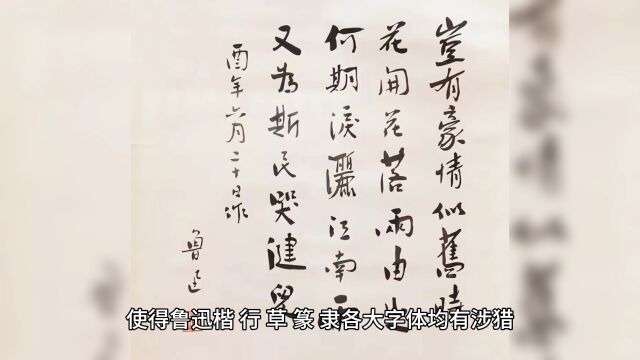 豈有豪情似舊時
花開花落兩由之
何期淚灑江南雨
又為斯民哭健兒
酉年六月二十日作
魯迅
使得鲁迅楷 行 草 篆 隶各大字体均有涉猎